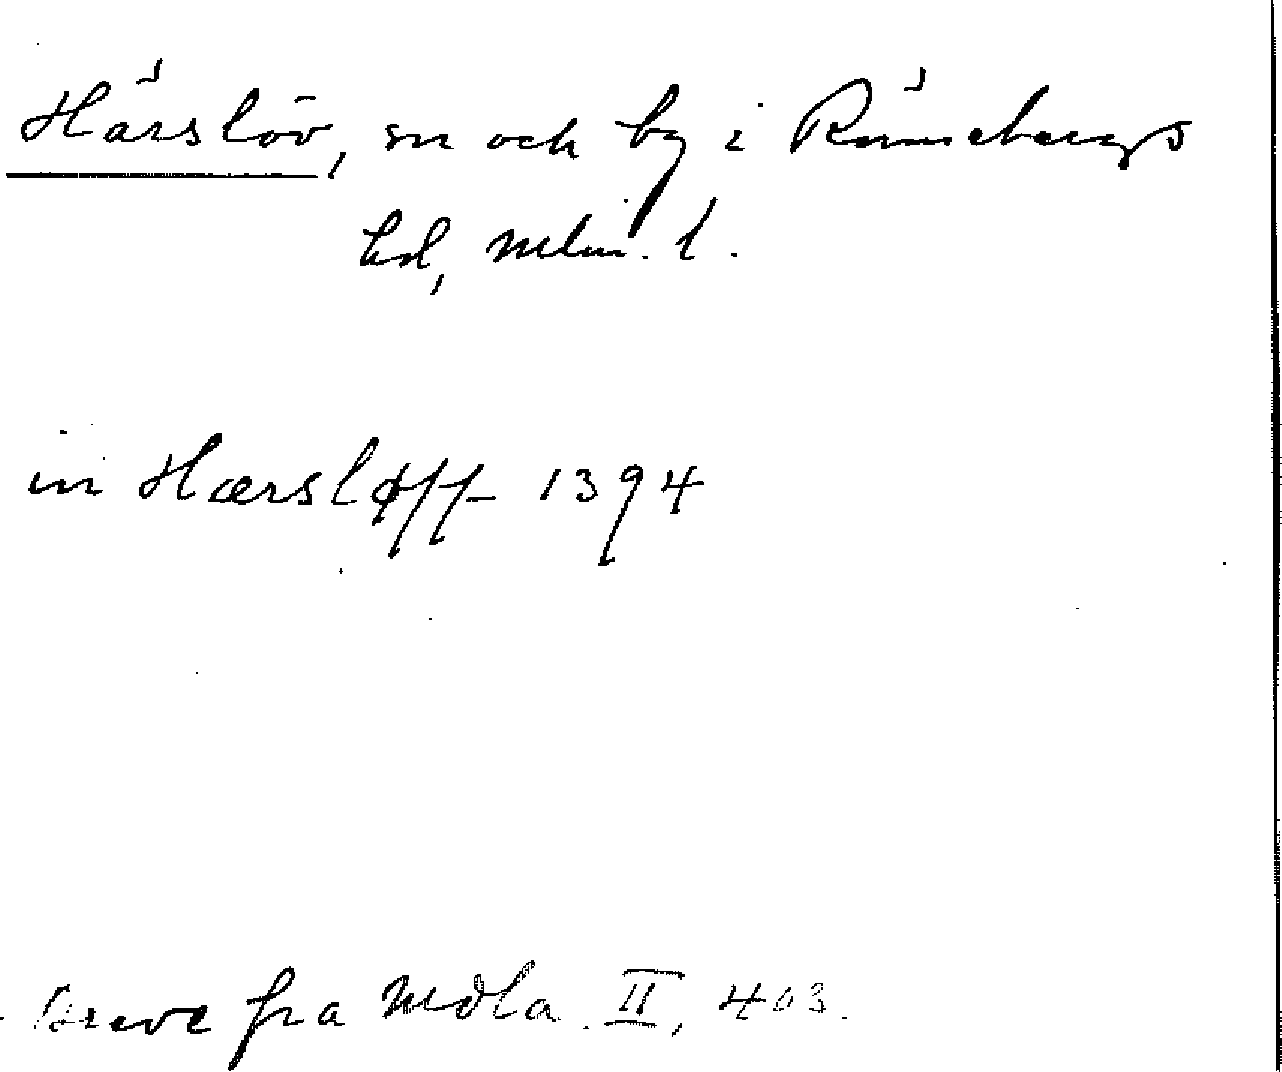 Härslöv, sn och by i Rönnebergs
hd, Mlm. l.
in Hærsløff 1394
Breve fra Mdla. II, 403.